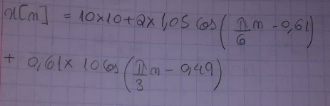 x[n] = 10×10+2×1,05 cos(π/6 n - 0,61)
+ 0,61 × 10 cos(π/3 n - 0,49)